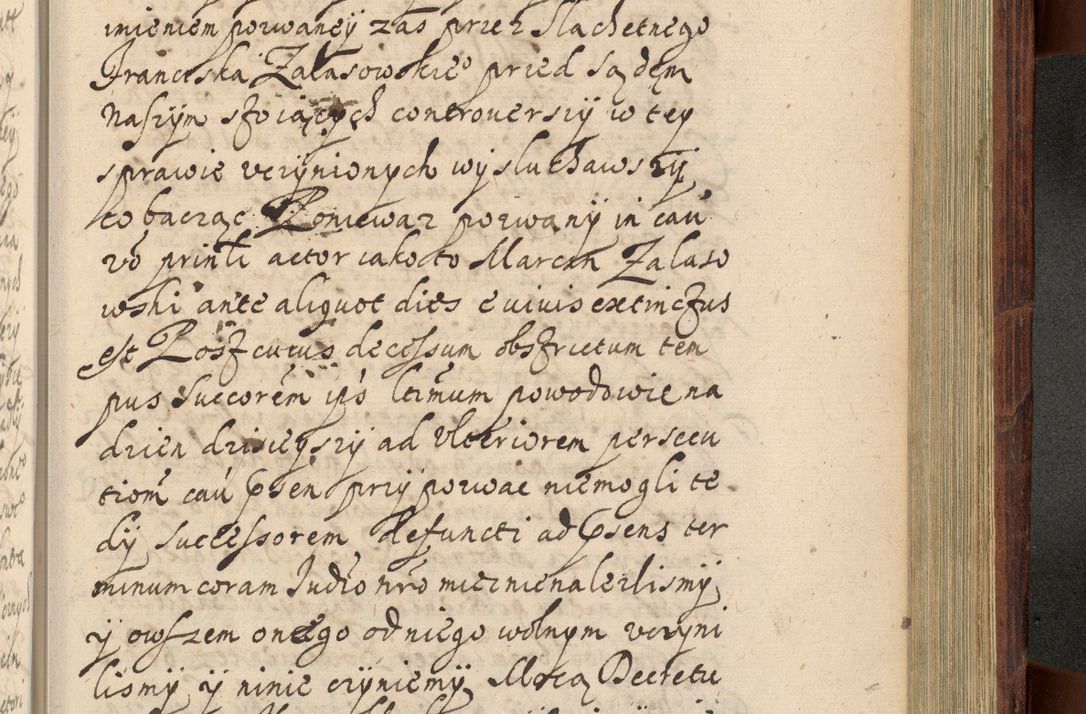 imieniem pozwaney zas przez Slachetnego
Franciska Zalasowskie° przed sądęm
naszym stoiących controuersiy w tey
sprawie vczÿnionych wysluchawszÿ
to bacząc Poniewaz pozwanÿ in cau
rō prinli actor iakoto Marcin Zalaso
wski ante aliquot dies e viuis extinctus
est Post cuius decessum obstrictum tem
pus Succorēm ips ltimum powodowie na
dzien dzisieÿszÿ ad vlteriorem persecu
tiom̄ cau psen przÿpozwac niemogli te
dÿ Successorem defuncti ad psens ter
minum coram Judio nro miec nienalezlismÿ
ÿ owszem onego od niego wolnym vczÿni
lismÿ ÿ ninie czÿniemÿ Mocą Decretu